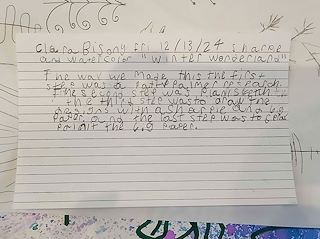 Clara Bisony Fri 12/13/24 Sharpe
and watercolor "winter wonderland"
The way we made this the first
step was a Patte Palmer research
The second step was plan/sketch
the third step was to draw the
designs with a sharpie and big
paper and the last step was to
paint the big paper.